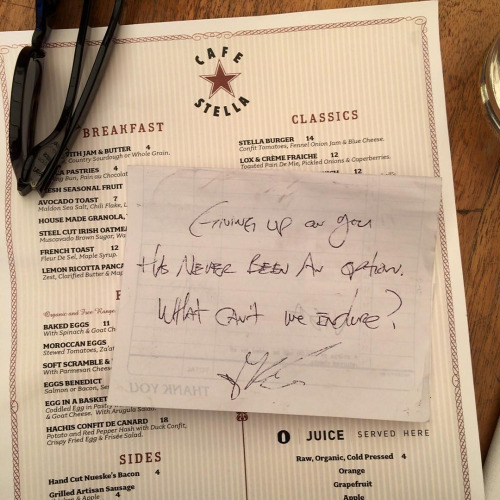 CAFE
STELLA
BREAKFAST
WITH JAM & BUTTER 4
Country Sourdough or Whole Grain.
PASTRIES 4
Bun, Pain au Chocolat
FRESH SEASONAL FRUIT
AVOCADO TOAST 7
Maldon Sea Salt, Chili Flake,
HOUSE MADE GRANOLA,
STEEL CUT IRISH OATMEAL
Muscovado Brown Sugar,
FRENCH TOAST 12
Fleur De Sel, Maple Syrup.
LEMON RICOTTA
Zest, Clarified Butter &
Organic and Free Range
BAKED EGGS 11
With Spinach & Goat
MOROCCAN EGGS
Stewed Tomatoes,
SOFT SCRAMBLE &
With Parmesan
EGGS BENEDICT
Salmon or Bacon,
EGG IN A BASKET
Coddled Egg in Pastry
& Goat Cheese. With Arugula
HACHIS CONFIT DE CANARD 18
Potato and Red Pepper Hash with Duck Confit,
Crispy Fried Egg & Frisée Salad.
SIDES
Hand Cut Nueske's Bacon 4
Grilled Artisan Sausage
CLASSICS
STELLA BURGER 14
Confit Tomatoes, Fennel Onion Jam & Blue Cheese.
LOX & CRÈME FRAICHE 12
Toasted Pain De Mie, Pickled Onions & Caperberries.
Giving up on you
Has never been an option.
What can't we endure?
THANK YOU
JUICE SERVED HERE
Raw, Organic, Cold Pressed 4
Orange
Grapefruit
Apple